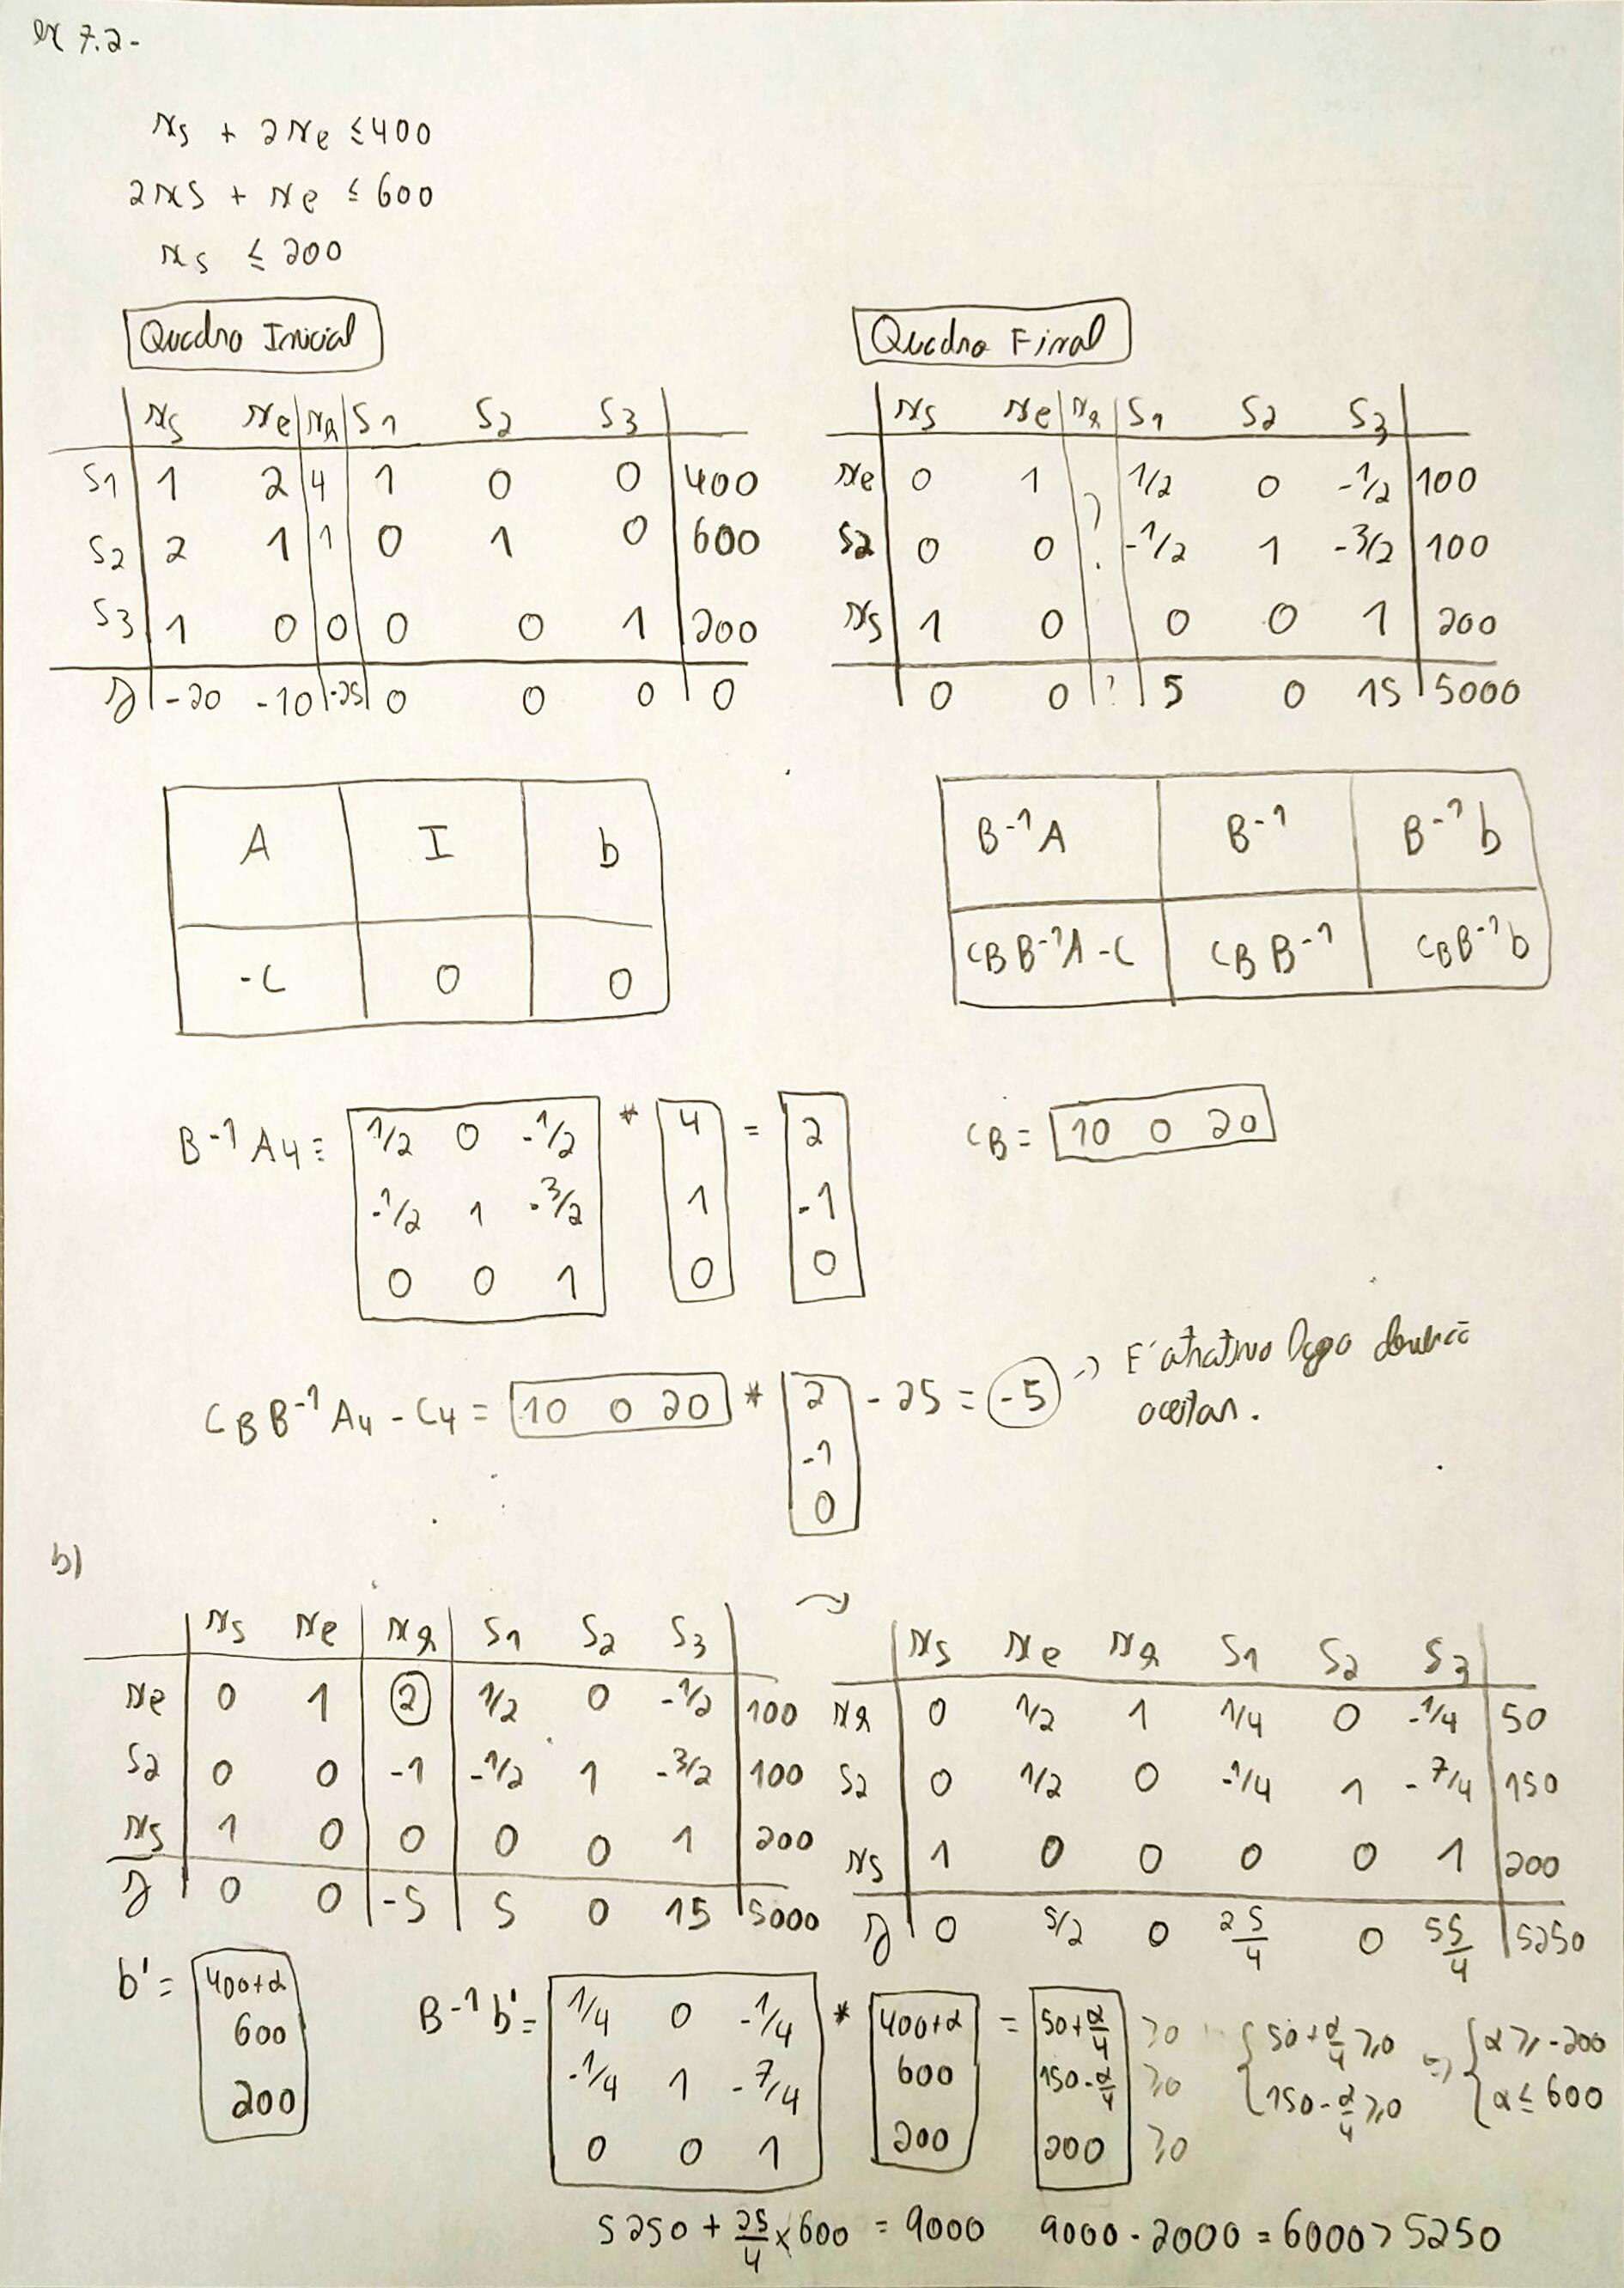 ex 7.2-
xs + 2xe ≤ 400
2xs + xe ≤ 600
xs ≤ 200
Quadro Inicial
xs xe xr S1 S2 S3
S1 1 2 4 1 0 0 400
S2 2 1 1 0 1 0 600
S3 1 0 0 0 0 1 200
z -20 -10 -25 0 0 0 0
Quadro Final
xs xe xr S1 S2 S3
xe 0 1 1/2 0 -1/2 100
S2 0 0 ? -1/2 1 -3/2 100
xs 1 0 0 0 1 200
0 0 ? 5 0 15 5000
A I b
-C 0 0
B-1A B-1 B-1b
CB B-1A -C CB B-1 CB B-1b
B-1 A4 = 1/2 0 -1/2 * 4 = 2
-1/2 1 -3/2 1 -1
0 0 1 0 0
CB = 10 0 20
CB B-1 A4 - C4 = 10 0 20 * 2 - 25 = -5 → É atrativo logo deverá
-1 aceitar.
0
b)
xs xe xr S1 S2 S3
xe 0 1 2 1/2 0 -1/2 100
S2 0 0 -1 -1/2 1 -3/2 100
xs 1 0 0 0 0 1 200
z 0 0 -5 5 0 15 5000
xs xe xr S1 S2 S3
xr 0 1/2 1 1/4 0 -1/4 50
S2 0 1/2 0 -1/4 1 -7/4 150
xs 1 0 0 0 0 1 200
z 0 5/2 0 25/4 0 55/4 5250
b' = 400+α
600
200
B-1 b' = 1/4 0 -1/4 * 400+α = 50+α/4 ≥0 { 50+α/4 ≥0 ⇒ { α ≥ -200
-1/4 1 -7/4 600 150-α/4 ≥0 150-α/4 ≥0 α ≤ 600
0 0 1 200 200 ≥0
5250 + 25/4 × 600 = 9000 9000 - 2000 = 6000 > 5250